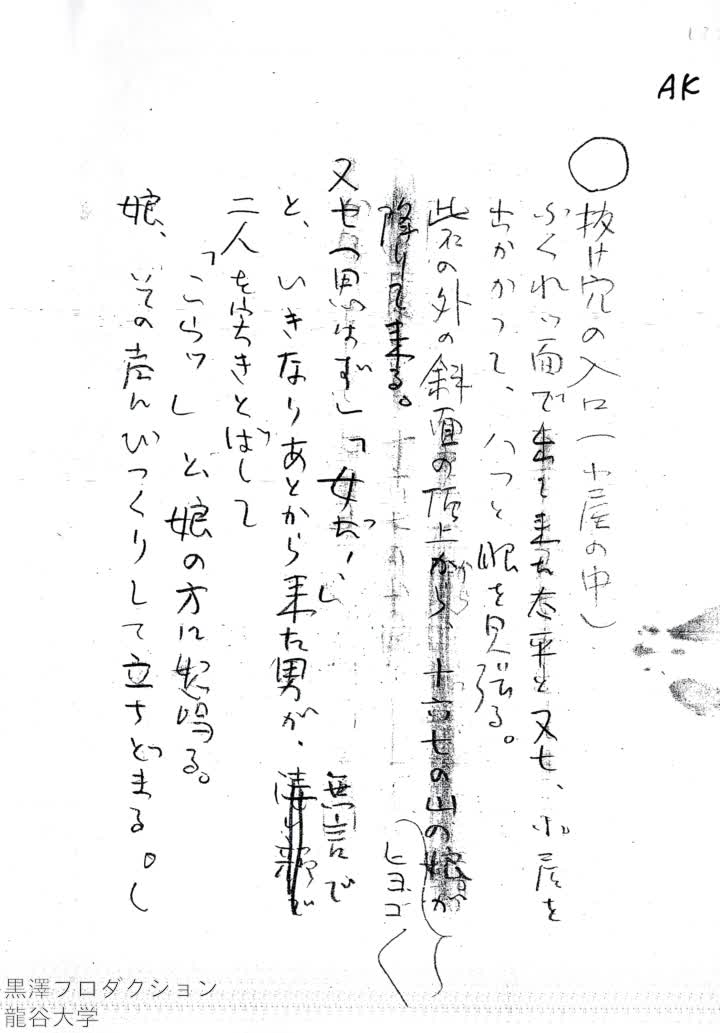 AK
抜け穴の入口(小屋の中)
ふくれッ面で出て来た太平と又七、小屋を
出かかつて、ハツと眼を見張る。
柴の外の斜面の頂上から、十六七の山の娘が
降りて来る。
ヒヨコ
又七へ思はず」「女だ!」
と、いきなりあとから来た男が、無言で
二人を突きとばして
「こらッ」と、娘の方に怒鳴る。
娘、その声にびつくりして立ちどまる。(
黒澤プロダクション
龍谷大学